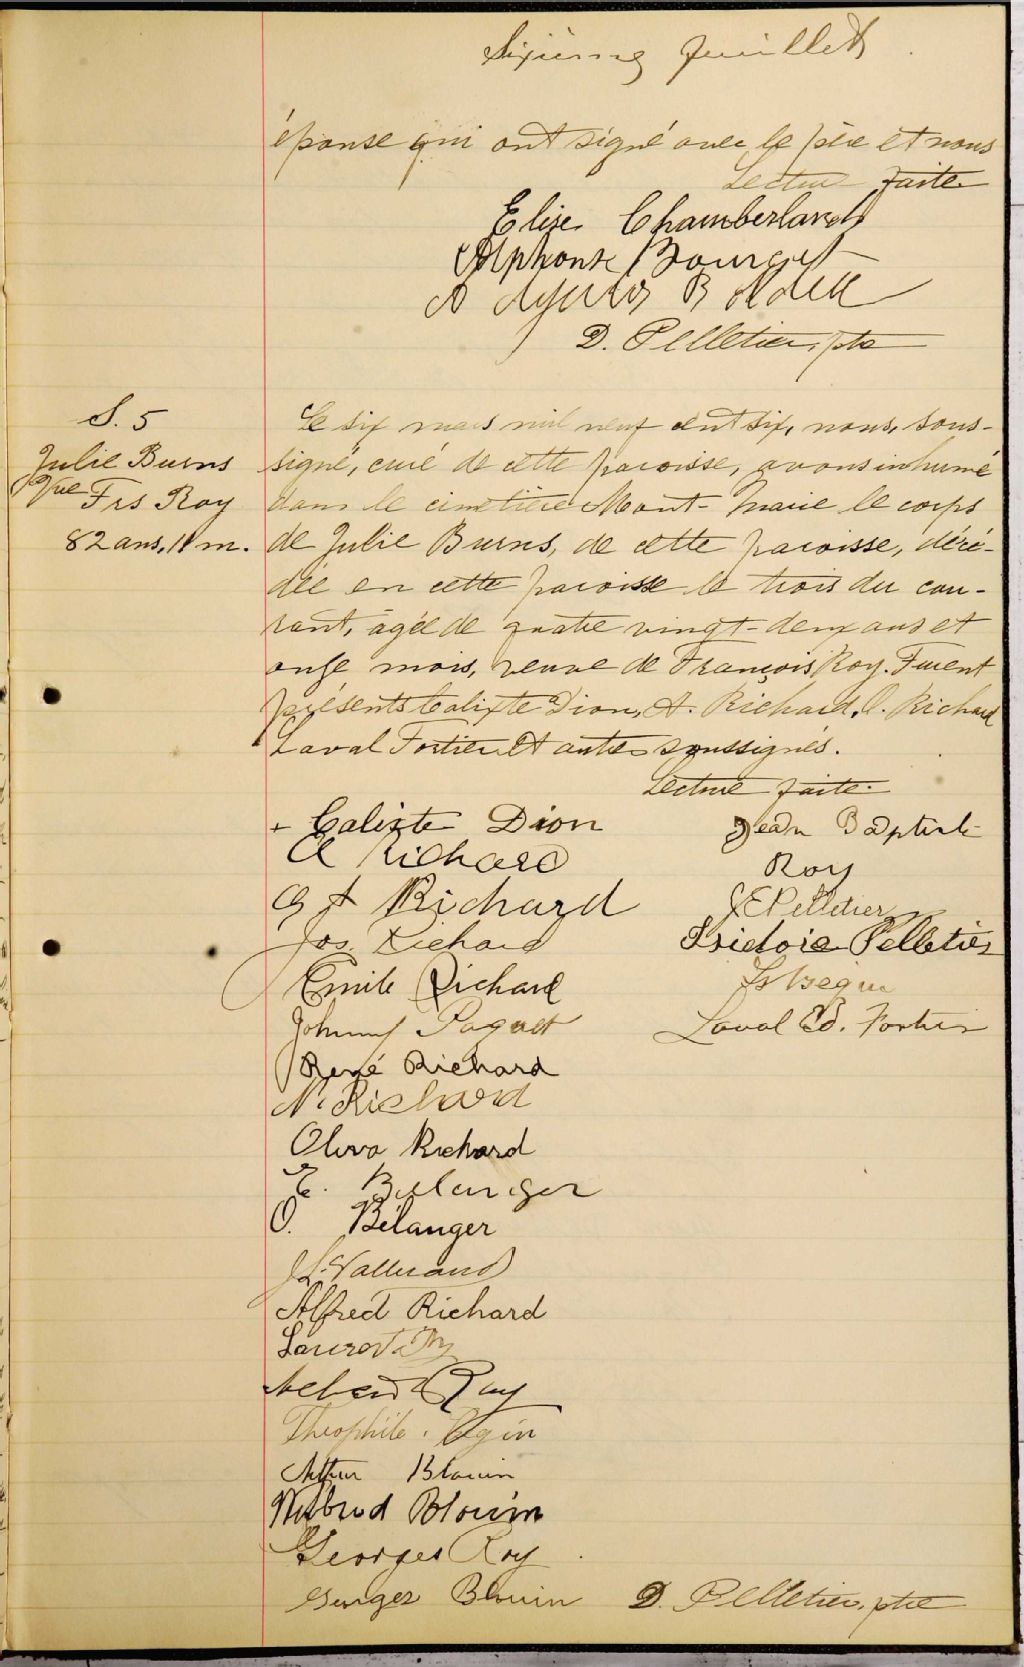 Sixième feuillet
épouse qui ont signé avec le père et nous
Lecture faite.
Elise Chamberland
Alphonse Bourget
D. Pelletier, ptr
S. 5
Julie Burns
Vve Frs Roy
82 ans, 11 m.
Le six mars mil neuf cent six, nous, sous-
signé, curé de cette paroisse, avons inhumé
dans le cimetière Mont-Marie le corps
de Julie Burns, de cette paroisse, décé-
dée en cette paroisse le trois du cou-
rant, âgée de quatre vingt-deux ans et
onze mois, veuve de François Roy. Furent
présents Calixte Dion, A. Richard, O. Richard
Laval Fortier et autres soussignés.
Lecture faite.
+ Calixte Dion
A Richard
G A Richard
Jos. Richard
Emile Richard
Johnny Paquet
René Richard
N. Richard
Oliva Richard
E. Belanger
O. Bélanger
J. L. Vallerand
Alfred Richard
Roy
Theophile Bégin
Arthur Blouin
Wilbrod Blouin
Georges Roy
Georges Blouin
Jean Baptiste
Roy
J E Pelletier
Isidore Pelletier
Begin
Laval Ed. Fortier
D. Pelletier, ptre